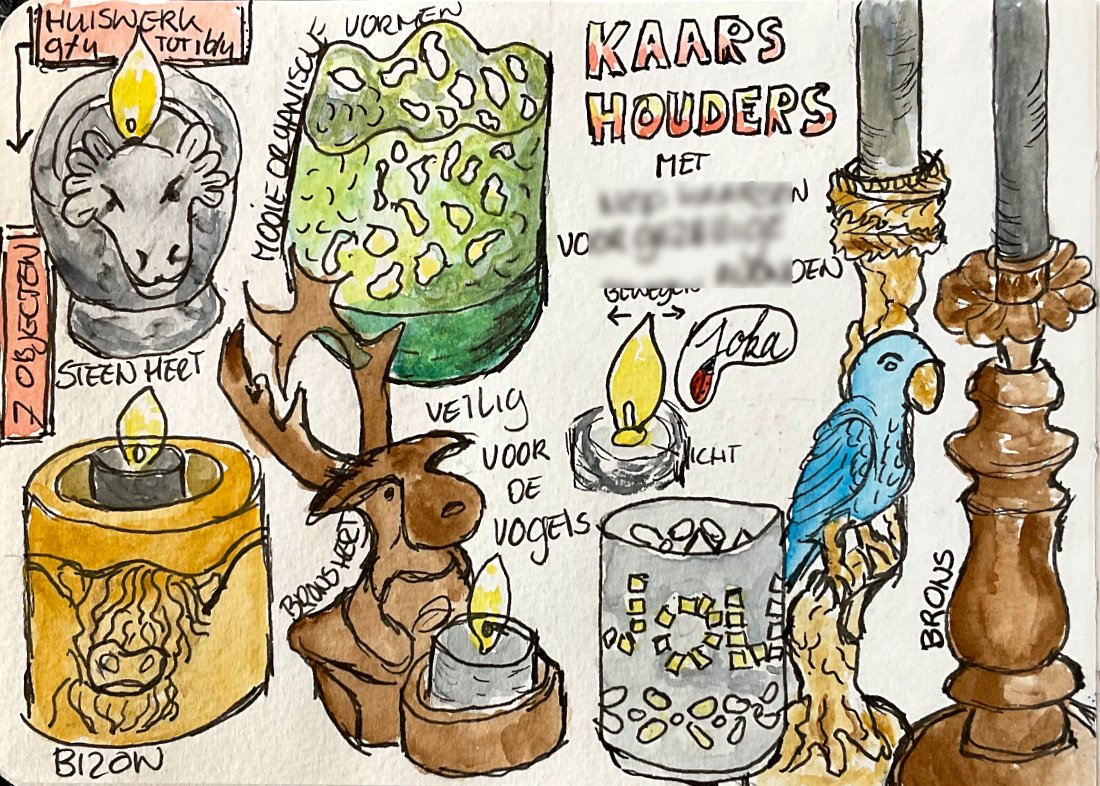 HUISWERK
9t/u TOT 16/u
7 OBJECTEN
STEEN HERT
MOOIE ORGANISCHE VORMEN
KAARS
HOUDERS
MET
BEWEGEN
Joka
VEILIG
VOOR
DE
VOGELS
BRONS HERT
BIZON
BRONS